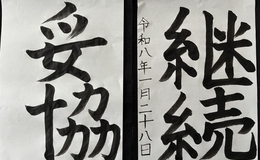 継続
令和八年一月二十八日
妥協